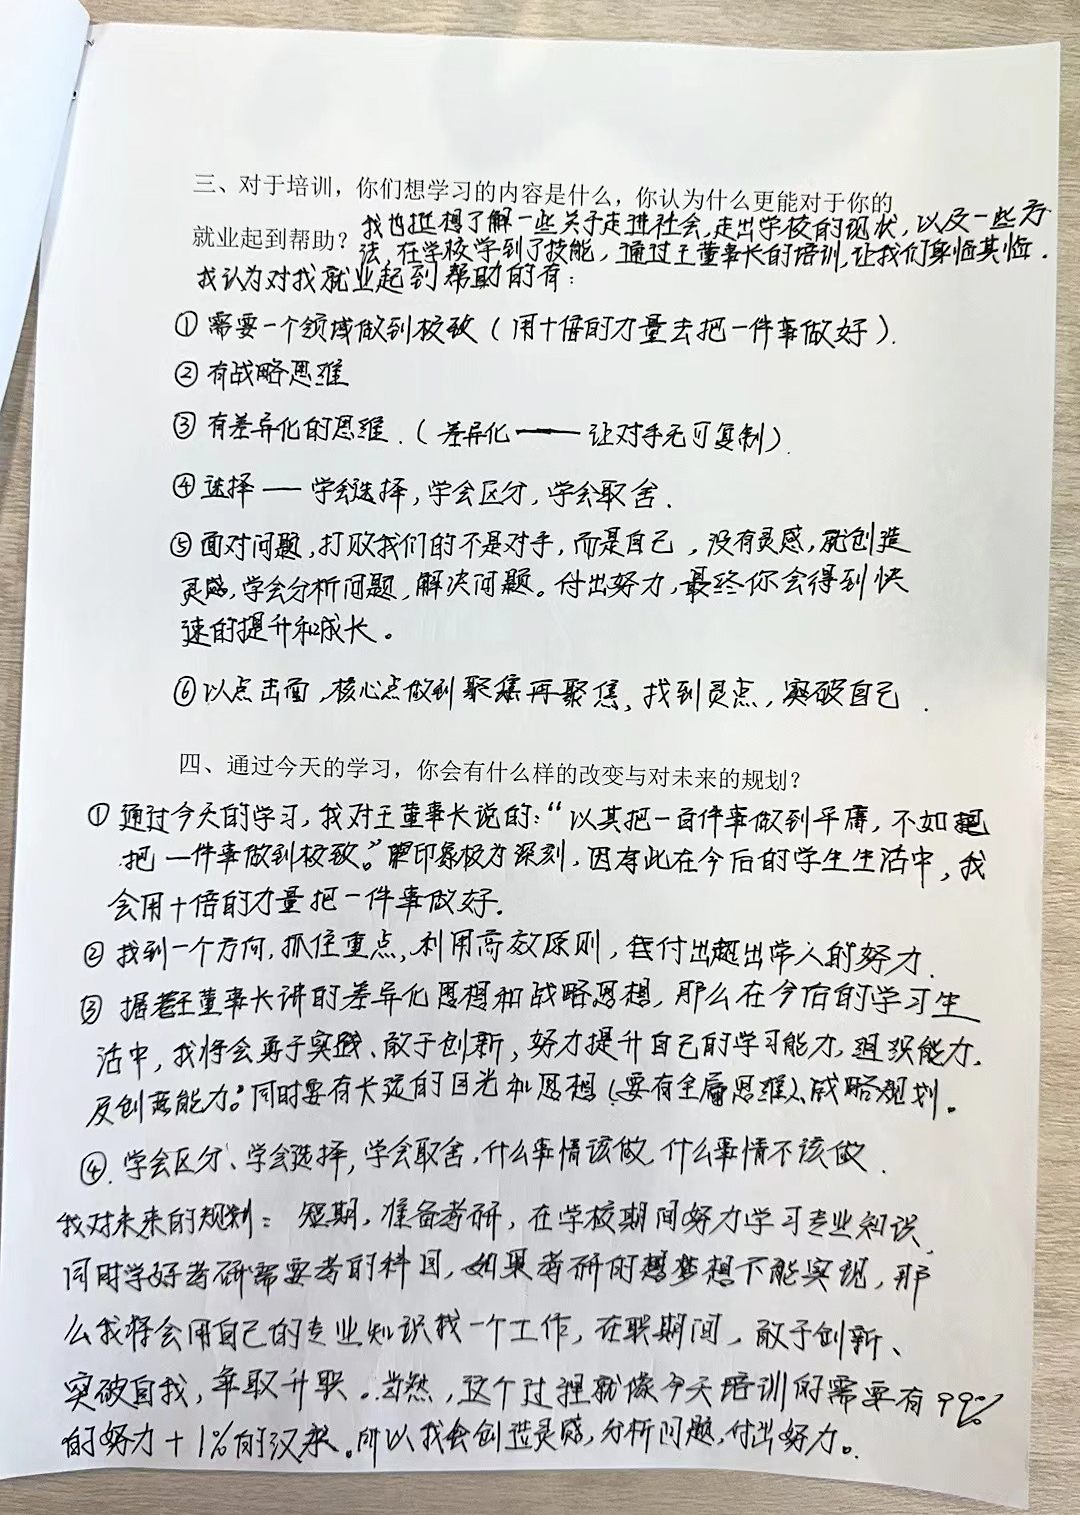 三、对于培训，你们想学习的内容是什么，你认为什么更能对于你的
就业起到帮助？
我也挺想了解一些关于走进社会,走出学校的现状，以及一些方
法,在学校学到了技能，通过王董事长的培训,让我们身临其临.
我认为对我就业起到帮助的有：
①需要一个领域做到极致（用十倍的力量去把一件事做好）.
②有战略思维
③有差异化的思维.（差异化——让对手无可复制）.
④选择——学会选择,学会区分,学会取舍.
⑤面对问题,打败我们的不是对手,而是自己,没有灵感,就创造
灵感,学会分析问题,解决问题。付出努力,最终你会得到快
速的提升和成长。
⑥以点击面,核心点做到聚焦再聚焦,找到灵点,突破自己.
四、通过今天的学习，你会有什么样的改变与对未来的规划？
①通过今天的学习,我对王董事长说的:“以其把一百件事做到平庸,不如
把一件事做到极致。”印象极为深刻,因存此在今后的学生生活中,我
会用十倍的力量把一件事做好.
②找到一个方向,抓住重点,利用高效原则,我付出超出常人的努力.
③据王董事长讲的差异化思想和战略思想,那么在今后的学习生
活中,我将会勇于实践、敢于创新,努力提升自己的学习能力,组织能力,
及创造能力。同时要有长远的目光和思想(要有全局思维)、战略规划。
④.学会区分、学会选择,学会取舍,什么事情该做.什么事情不该做.
我对未来的规划：短期,准备考研,在学校期间好力学习专业知识,
同时学好考研需要考的科目,如果考研的梦想不能实现,那
么我将会用自己的专业知识找一个工作,在职期间,敢于创新、
突破自我,争取升职。当然,这个过程就像今天培训的需要有99%
的努力+1%的汉水。所以我会创造灵感,分析问题,付出努力。